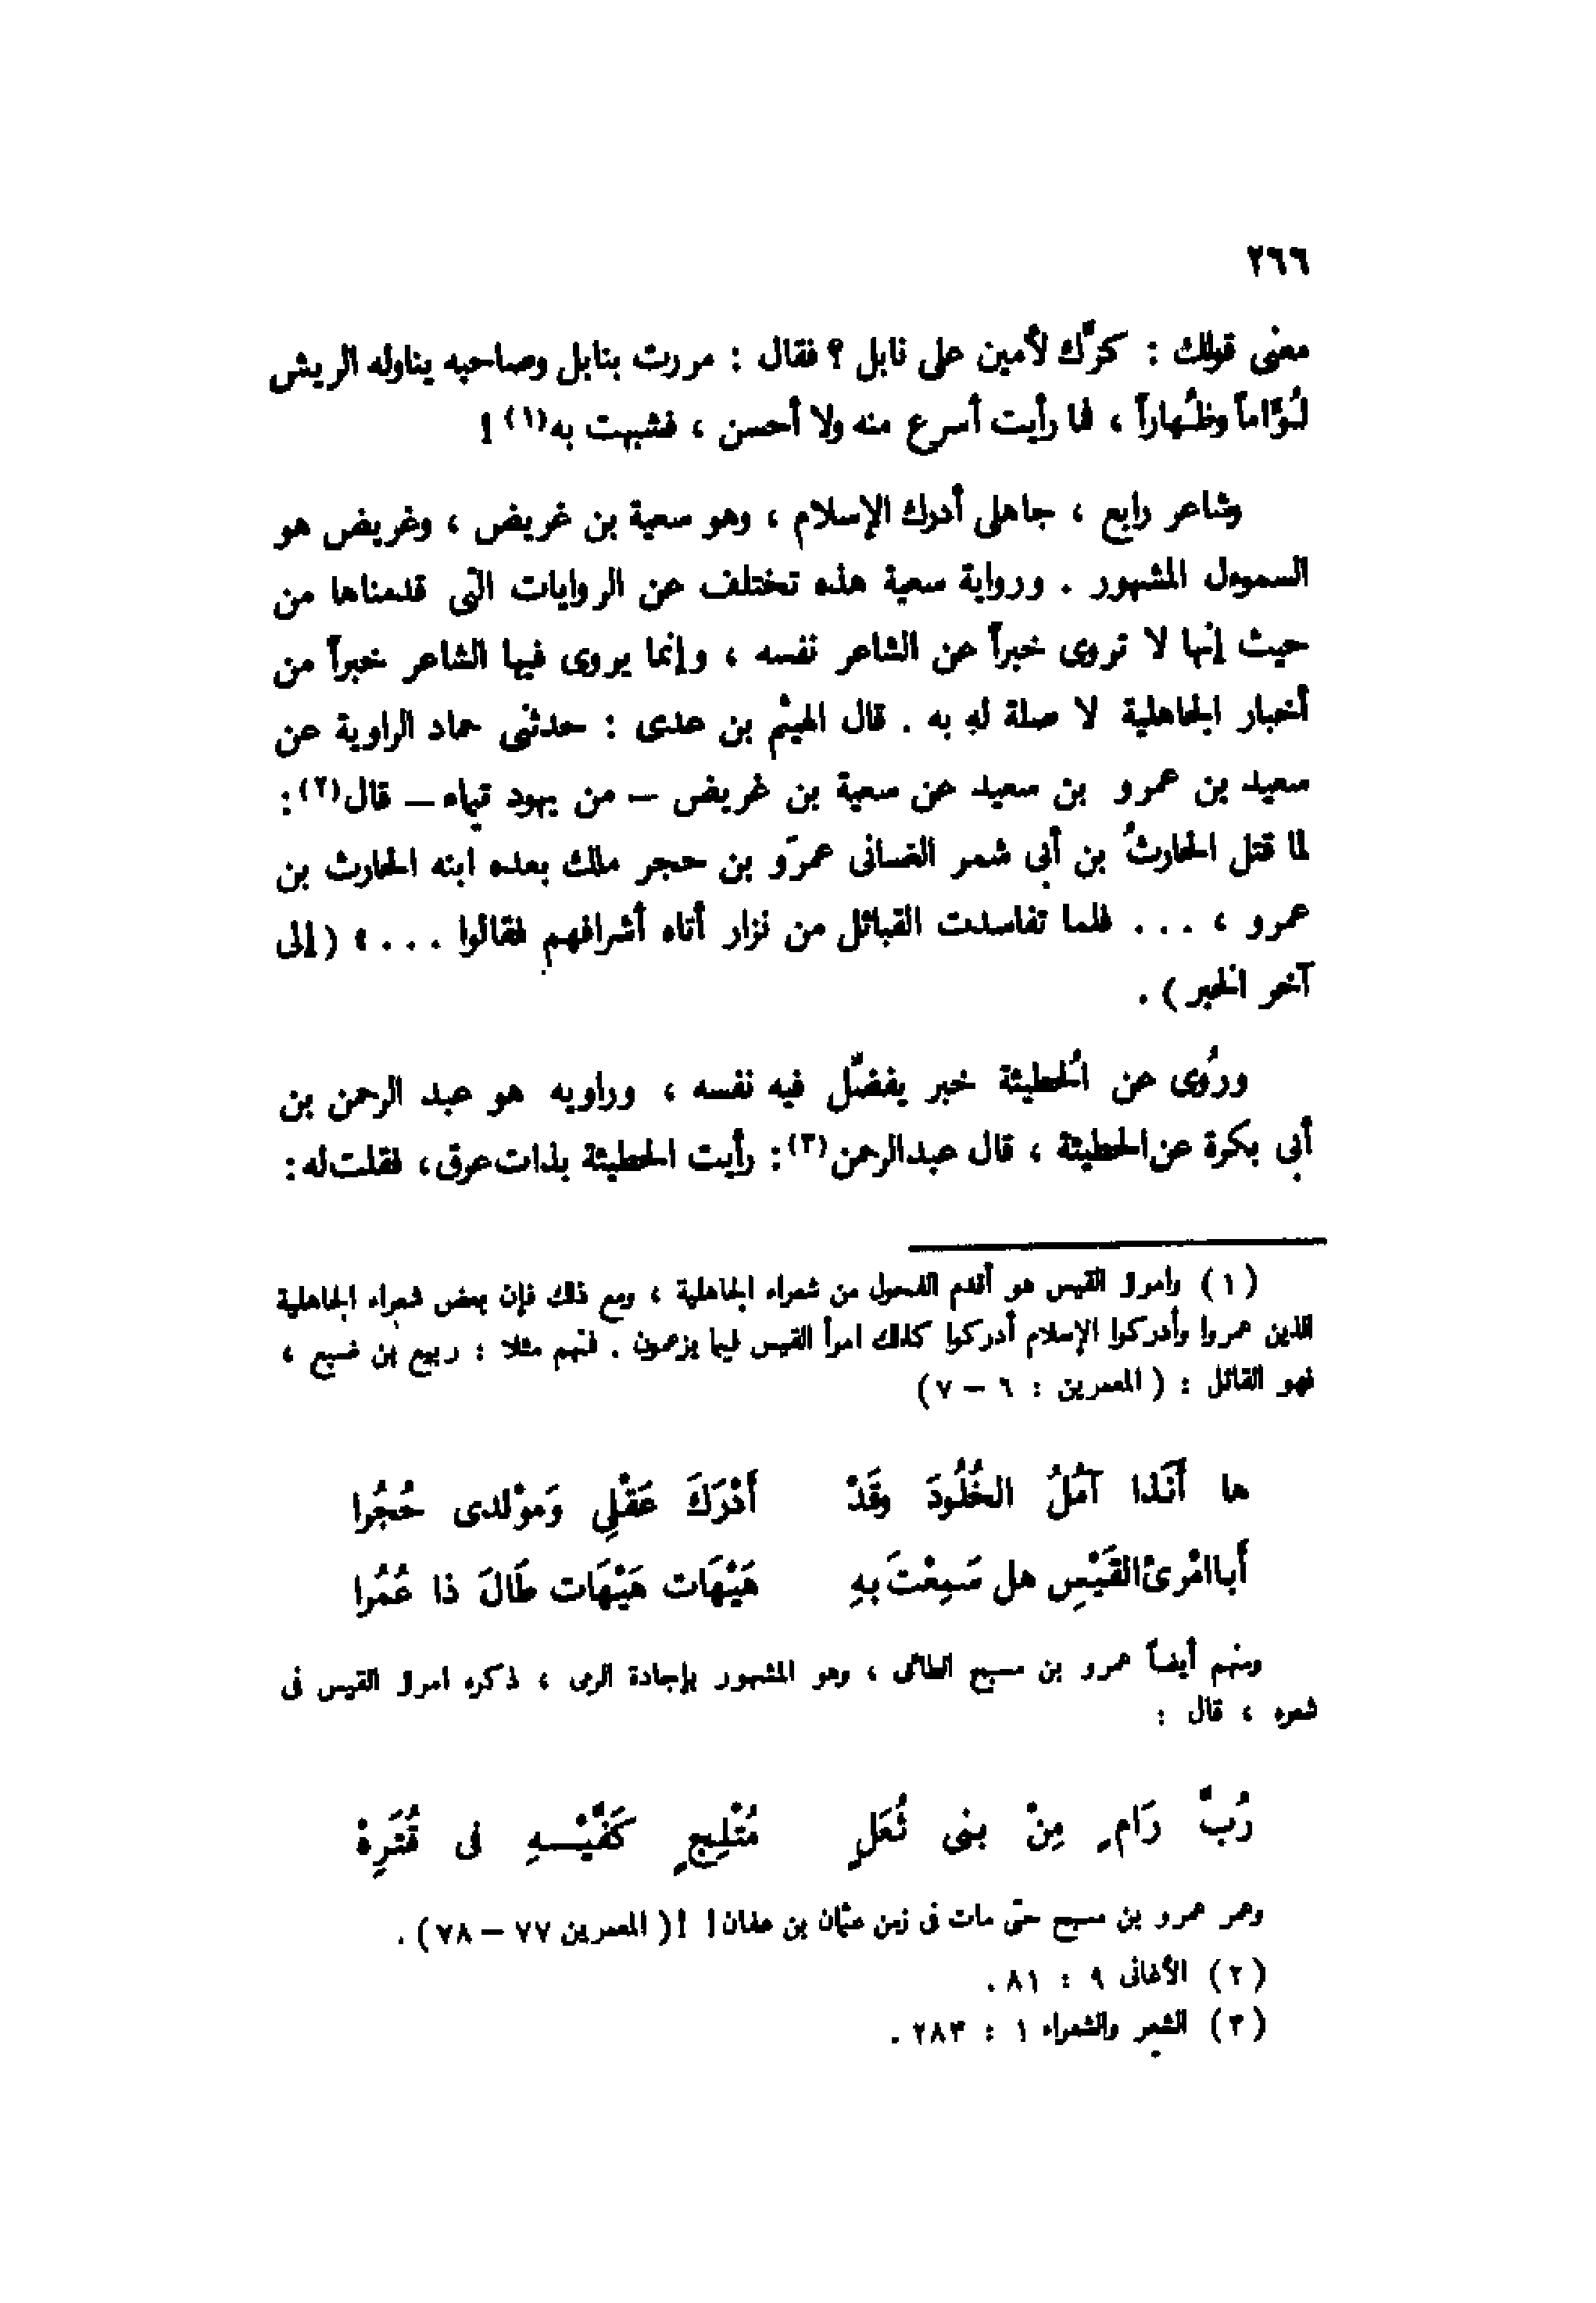 ٢٦٦
معنى قولك : كرَّك لأمين على نابل ؟ فقال : مررت بنابل وصاحبه يناوله الريش
لُؤَاماً وظُهاراً ، فما رأيت أسرع منه ولا أحسن ، فشبهت به(١) !
وشاعر رابع ، جاهلى أدرك الإسلام ، وهو سعية بن غريض ، وغريض هو
السموءل المشهور . ورواية سعية هذه تختلف عن الروايات التى قدمناها من
حيث إنها لا تروى خبراً عن الشاعر نفسه ، وإنما يروى فيها الشاعر خبراً من
أخبار الجاهلية لا صلة له به . قال الهيثم بن عدى : حدثنى حماد الراوية عن
سعيد بن عمرو بن سعيد عن سعية بن غريض – من يهود تيماء – قال(٢) :
لما قتل الحارثُ بن أبى شمر الغسانى عمرَو بن حجر ملك بعده ابنه الحارث بن
عمرو ، . . . فلما تفاسدت القبائل من نزار أتاه أشرافهم فقالوا . . . » ( إلى
آخر الخبر ) .
ورُوى عن الحُطيئة خبر يفضّل فيه نفسه ، وراويه هو عبد الرحمن بن
أبى بكرة عن الحطيئة ، قال عبد الرحمن(٣) : رأيت الحطيئة بذات عرق ، فقلت له :
(١) وامرؤ القيس هو أقدم الفحول من شعراء الجاهلية ، ومع ذلك فإن بعض شعراء الجاهلية
الذين عمروا وأدركوا الإسلام أدركوا كذلك امرأ القيس فيما يزعمون . فمنهم مثلا : ربيع بن ضبيع ،
فهو القائل : ( المعمرين : ٦ – ٧ )
ها أَنَذا آمُلُ الخُلُودَ وقَدْ أَدْرَكَ عَقْلِي وَموْلدى حُجُرا
أَبا امْرِئ القَيْسِ هل سَمِعْتَ بهِ هَيْهَات هَيْهَات طَالَ ذا عُمُرا
ومنهم أيضاً عمرو بن مسبح الطائى ، وهو المشهور بإجادة الرمى ، ذكره امرؤ القيس فى
شعره ، قال :
رُبَّ رَامٍ مِنْ بنى ثُعَلٍ مُتْلِجٍ كَفَّيْـــهِ فى قُتَرِهْ
وعمر عمرو بن مسبح حتى مات فى زمن عثمان بن عفان! ! ( المعمرين ٧٧ – ٧٨ ) .
(٢) الأغانى ٩ : ٨١ .
(٣) الشعر والشعراء ١ : ٢٨٣ .